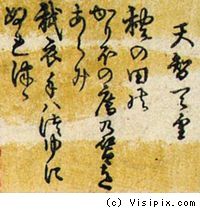 天智天皇
穐の田の
かりほの庵乃苫を
あらみ
我衣手ハ徒ゆに
ぬれ徒ゝ
(c) Visipix.com